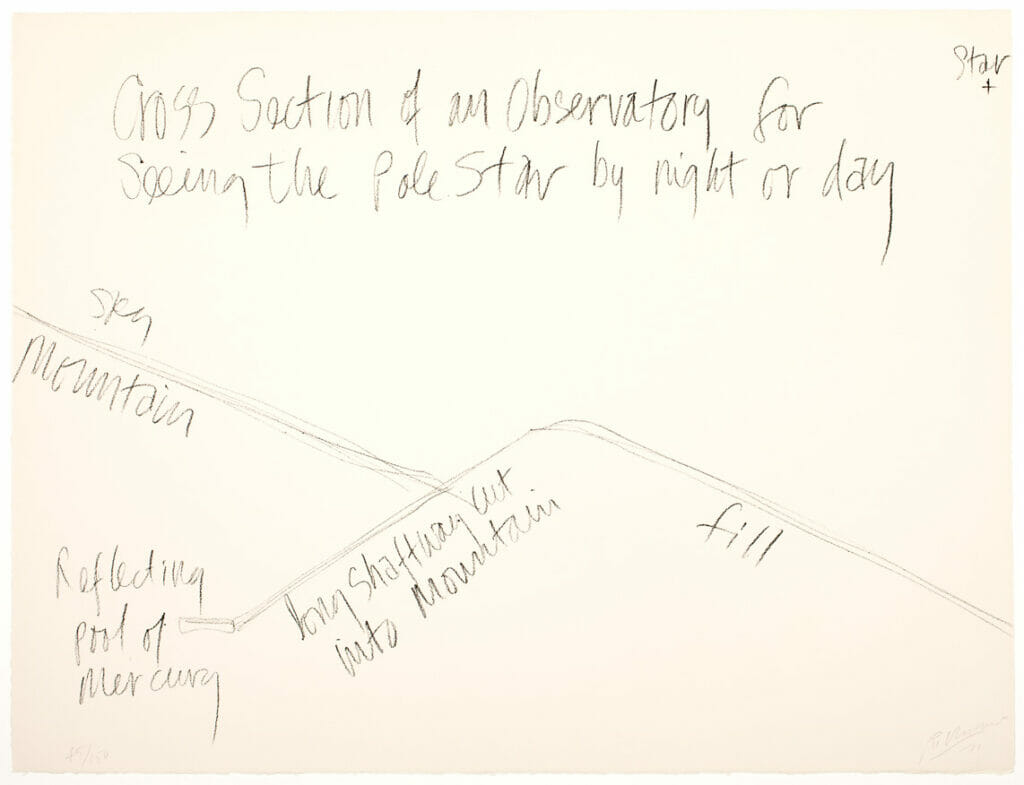 Star
Cross Section of an Observatory for
Seeing the Pole Star by night or day
Sky
Mountain
long shaftway cut
into mountain
fill
Reflecting
pool of
mercury